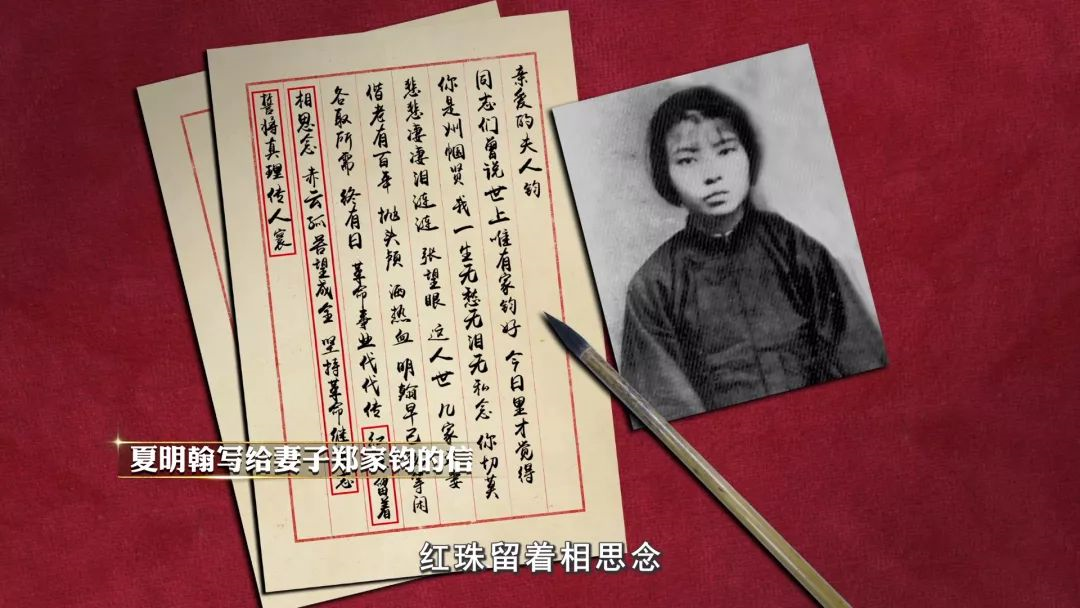 亲爱的夫人钧
同志们曾说世上唯有家钧好 今日里才觉得
你是巾帼贤 我一生无愁无泪无私念 你切莫
悲悲凄凄泪涟涟 张望眼 这人世 几家 妻
偕老有百年 抛头颅 洒热血 明翰早已 等闲
各取所需 终有日 革命事业代代传 红 留着
相思念 赤云孤苦望成全 坚持革命继 志
誓将真理传人寰
夏明翰写给妻子郑家钧的信
红珠留着相思念